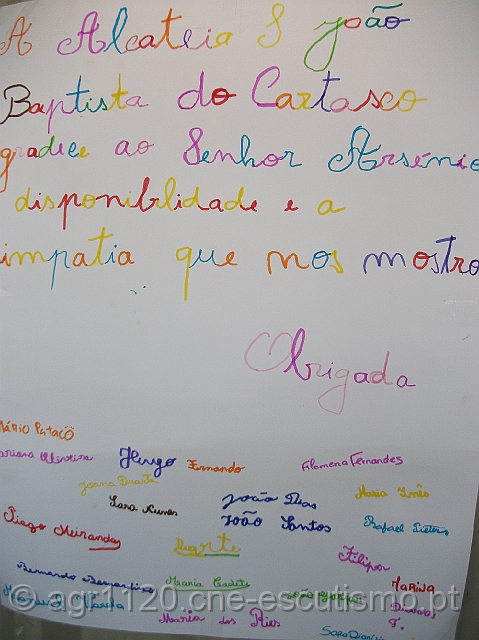 A Alcateia S João
Baptista do Cartaxo
gradece ao Senhor Arsénio
disponiblidade e a
impatia que nos mostro
Obrigada
Mário Pataco
ariana Oliveira Hugo Fernando Filomena Fernandes
Joana Duarte
Sara Nunes João Dias Maria Inês
Tiago Meirandas João Santos Rafael
Duarte
Filipa
Bernardo Bernardino Maria Marina
Maria dos Reis
© agr1120.cne-escutismo.pt